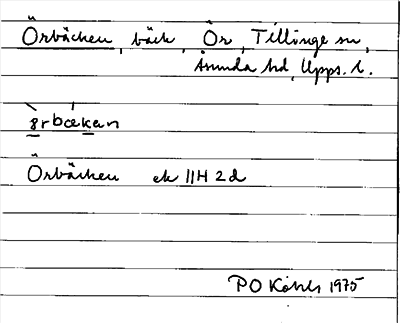 Örbäcken, bäck, Ör, Tillinge sn,
Åsunda hd, Upps. l.
ö̀rbæ̀kan
Örbäcken ek 11H 2d
PO 1975